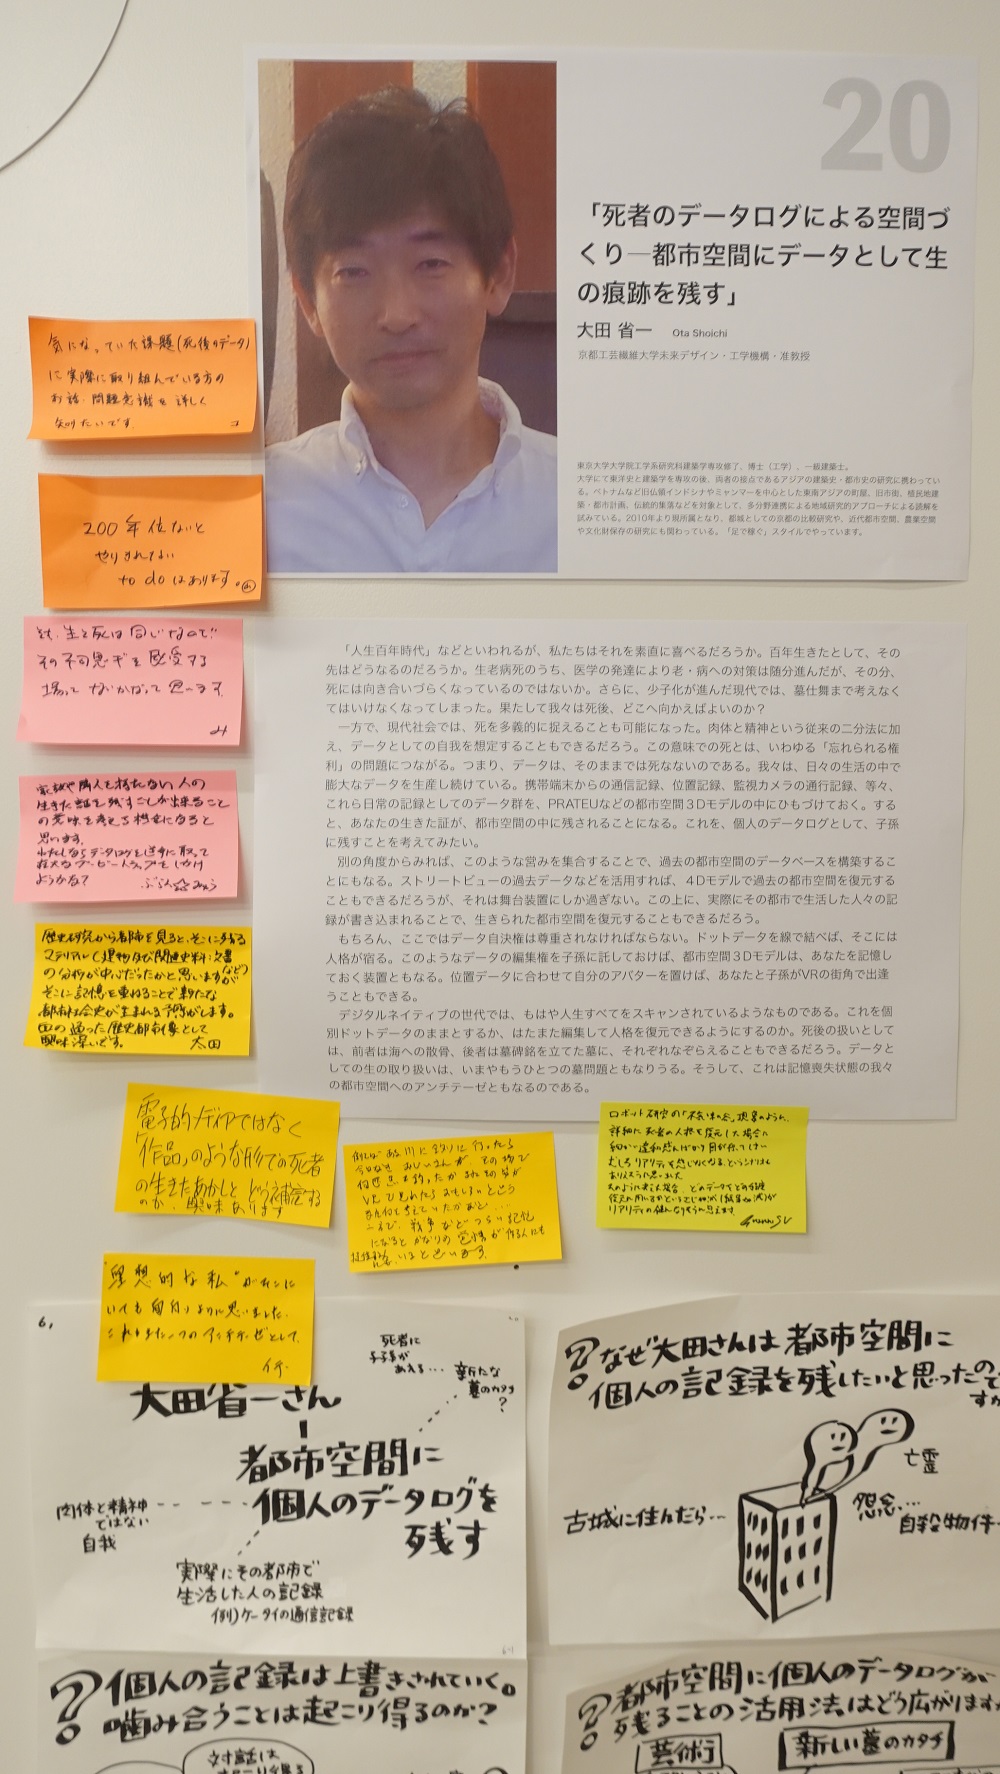 20
「死者のデータログによる空間づ
くり─都市空間にデータとして生
の痕跡を残す」
大田 省一 Ota Shoichi
京都工芸繊維大学未来デザイン・工学機構・准教授
東京大学大学院工学系研究科建築学専攻修了、博士（工学）、一級建築士。
大学にて東洋史と建築学を専攻の後、両者の接点であるアジアの建築史・都市史の研究に携わってい
る。ベトナムなど旧仏領インドシナやミャンマーを中心とした東南アジアの町屋、旧市街、植民地建
築・都市計画、伝統的集落などを対象として、多分野連携による地域研究的アプローチによる読解を
試みている。2010年より現所属となり、都城としての京都の比較研究や、近代都市空間、農業空間
や文化財保存の研究にも関わっている。「足で稼ぐ」スタイルでやっています。
気になっていた課題(死後のデータ)
に実際に取り組んでいる方の
お話、問題意識を詳しく
知りたいです。
200年位ないと
やりきれない
to do はあります。
生と死は同じなので
その不思議を感受する
「人生百年時代」などといわれるが、私たちはそれを素直に喜べるだろうか。百年生きたとして、その
先はどうなるのだろうか。生老病死のうち、医学の発達により老・病への対策は随分進んだが、その分、
死には向き合いづらくなっているのではないか。さらに、少子化が進んだ現代では、墓仕舞まで考えなく
てはいけなくなってしまった。果たして我々は死後、どこへ向かえばよいのか？
一方で、現代社会では、死を多義的に捉えることも可能になった。肉体と精神という従来の二分法に加
え、データとしての自我を想定することもできるだろう。この意味での死とは、いわゆる「忘れられる権
利」の問題につながる。つまり、データは、そのままでは死なないのである。我々は、日々の生活の中で
膨大なデータを生産し続けている。携帯端末からの通信記録、位置記録、監視カメラの通行記録、等々、
これら日常の記録としてのデータ群を、PRATEUなどの都市空間3Dモデルの中にひもづけておく。する
と、あなたの生きた証が、都市空間の中に残されることになる。これを、個人のデータログとして、子孫
に残すことを考えてみたい。
別の角度からみれば、このような営みを集合することで、過去の都市空間のデータベースを構築するこ
とにもなる。ストリートビューの過去データなどを活用すれば、4Dモデルで過去の都市空間を復元する
こともできるだろうが、それは舞台装置にしか過ぎない。この上に、実際にその都市で生活した人々の記
録が書き込まれることで、生きられた都市空間を復元することもできるだろう。
もちろん、ここではデータ自決権は尊重されなければならない。ドットデータを線で結べば、そこには
人格が宿る。このようなデータの編集権を子孫に託しておけば、都市空間3Dモデルは、あなたを記憶し
ておく装置ともなる。位置データに合わせて自分のアバターを置けば、あなたと子孫がVRの街角で出逢
うこともできる。
デジタルネイティブの世代では、もはや人生すべてをスキャンされているようなものである。これを個
別ドットデータのままとするか、はたまた編集して人格を復元できるようにするのか。死後の扱いとして
は、前者は海への散骨、後者は墓碑銘を立てた墓に、それぞれなぞらえることもできるだろう。データと
しての生の取り扱いは、いまやもうひとつの墓問題ともなりうる。そうして、これは記憶喪失状態の我々
の都市空間へのアンチテーゼともなるのである。
家族や隣人を持たない人の
生きた証を残すことが出来ること
の意味を考える機会になると
思います。
わたしならデータログを逆手に取って
ようかな？
歴史研究から都市を見ると、そこに残る
マテリアル(建物及び関連史料:文書など)
の分析が中心だったかと思いますが
そこに記憶を重ねることで新たな
都市社会史が生まれる予感がします。
血の通った歴史都市像として
興味深いです。 太田
電子的メディアではなく
「作品」のような形での死者
の生きたあかしを どう補完する
のか、興味あります
理想的な私"がそこに
いても面白いように思いました。
これもまた一つのアンチテーゼとして。
6,
死者に
子孫が
あえる...
新たな
墓のカタチ
?
大田省一さん
都市空間に
個人のデータログを
残す
肉体と精神
ではない
自我
実際にその都市で
生活した人の記録
例)ケータイの通信記録
?なぜ大田さんは都市空間に
個人の記録を残したいと思ったので
すか
亡霊
古城に住んだら...
怨念...
自殺物件
?個人の記録は上書きされていく。
噛み合うことは起こり得るのか?
対話は
?都市空間に個人のデータログが
残ることの活用法はどう広がりますか
芸術
新しい墓のカタチ